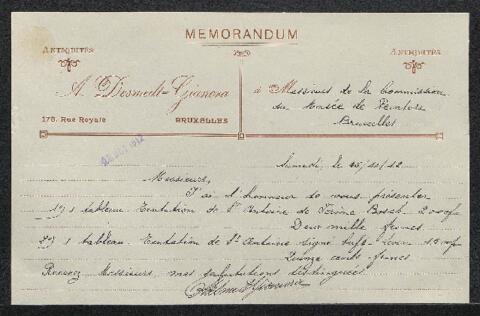 MEMORANDUM
ANTIQUITÉS
ANTIQUITÉS
A. Desmedt-Gianora
178. Rue Royale BRUXELLES
à Messieurs de la Commission
du Musée de Peinture
Bruxelles
Samedi, le /10/12
Messieurs,
J'ai l'honneur de vous présenter
1) 1 tableau. Tentation de St Antoine de Jérôme Bosch. 2000 fr
Deux mille francs.
2) 1 tableau. Tentation de St Antoine signé 1500 fr
Quinze cents francs
Recevez Messieurs, mes salutations distinguées